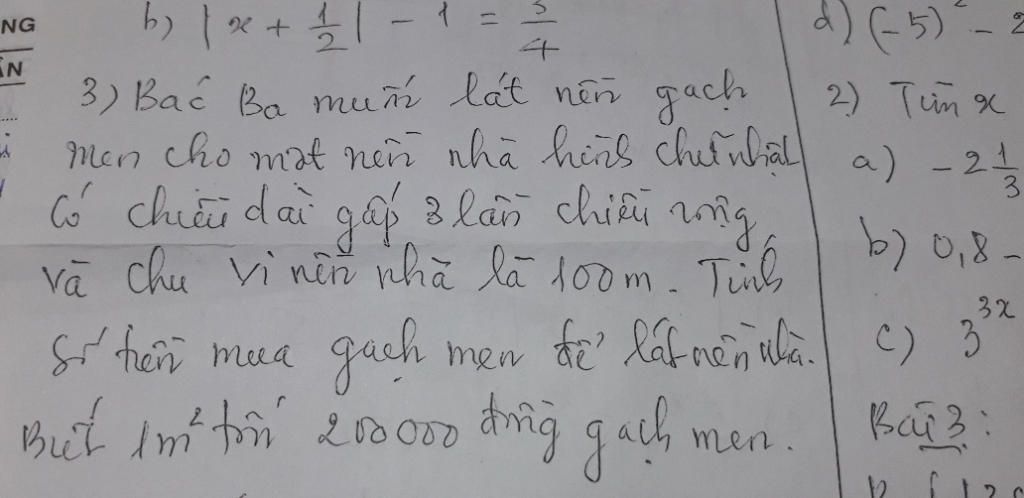 NG
ÂN
b) |x + 1/2| - 1 = 3/4
3) Bác Ba muốn lát nền gạch
men cho một nền nhà hình chữ nhật
Có chiều dài gấp 3 lần chiều rộng
và chu vi nền nhà là 100m. Tính
Số tiền mua gạch men để lát nền nhà.
Biết 1m² tốn 200000 đồng gạch men.
d) (-5)² - 2
2) Tìm x
a) -2 1/3
b) 0,8 -
c) 3^3x
Bài 3: